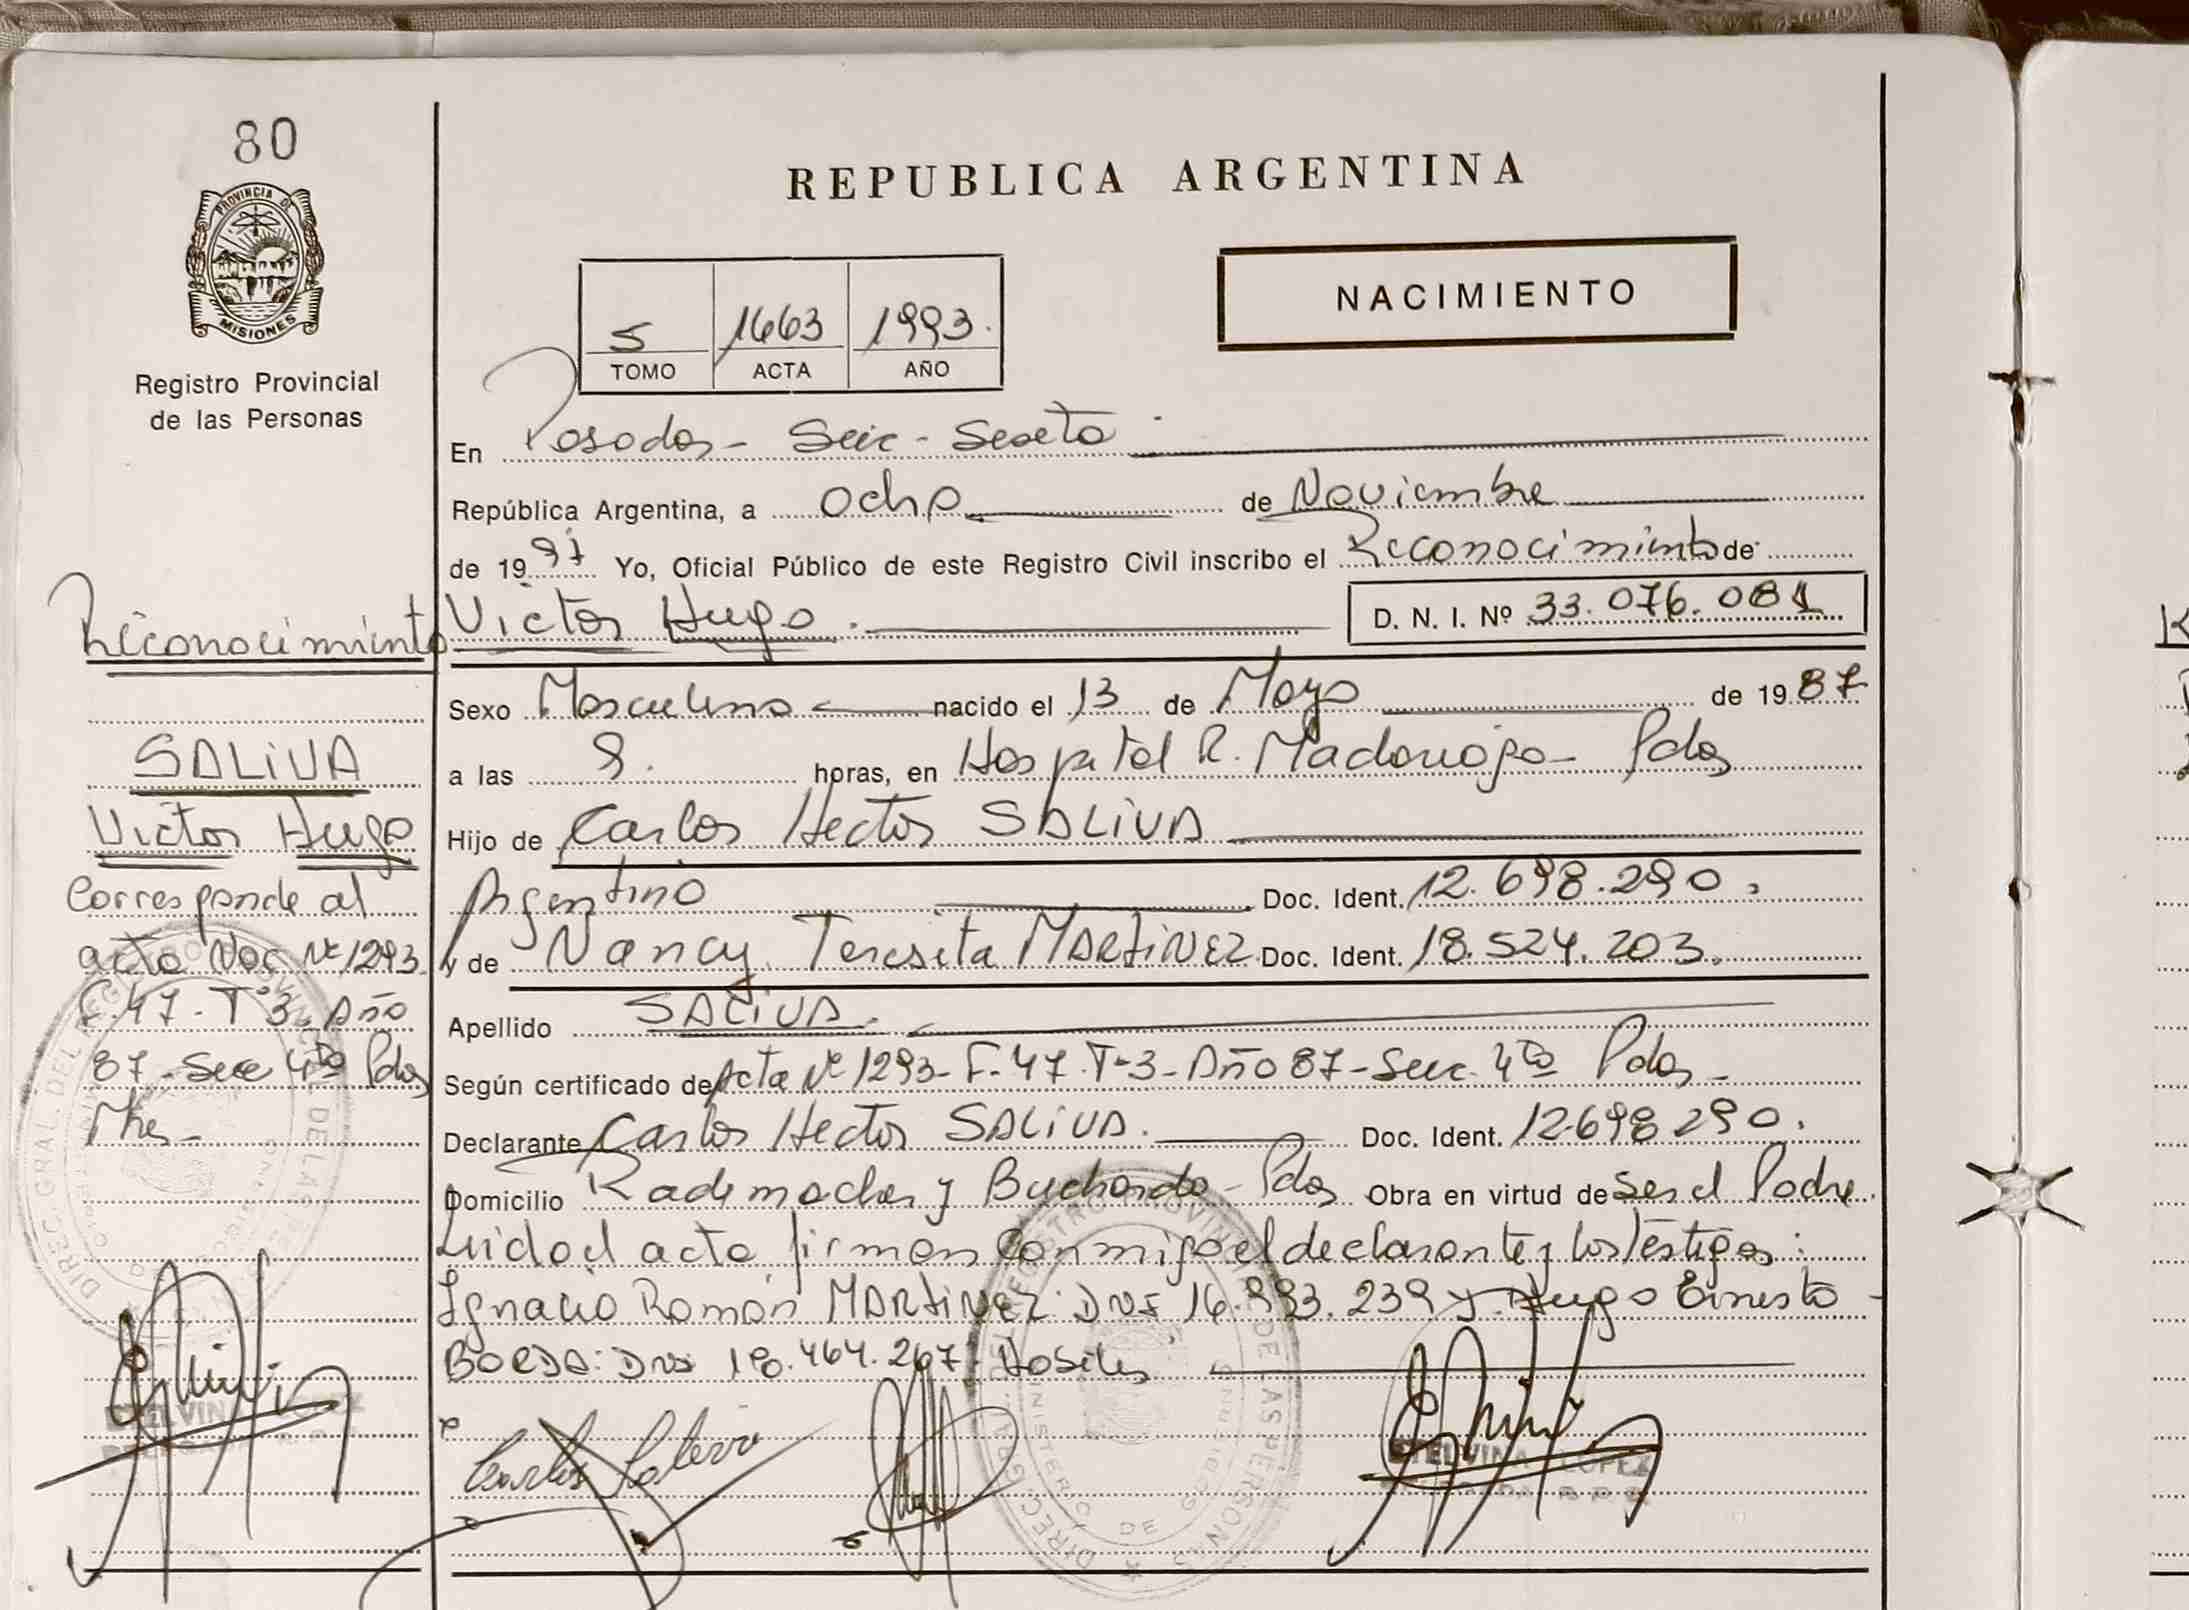 80
PROVINCIA DE
MISIONES
Registro Provincial
de las Personas
REPUBLICA ARGENTINA
5 1663 1993.
TOMO ACTA AÑO
NACIMIENTO
En Posadas - Secc - Sexta
República Argentina, a ocho de Noviembre
de 19 Yo, Oficial Público de este Registro Civil inscribo el Reconocimiento de
Victor Hugo. D. N. I. Nº 33.076.081
Sexo Masculino nacido el 13 de Mayo de 1987
a las horas, en Hospital R. Madariaga - Pdas
Hijo de Carlos Hector SALIVA
Argentino Doc. Ident. 12.698.290.
y de Nancy Teresita MARTiNEZ Doc. Ident. 18.524.203.
Apellido SALiVA.
Según certificado de Acta Nº 1293 - F-47. T-3 - Año 87 - Secc. 4ta Pdas -
Declarante Carlos Hector SALiVA. Doc. Ident. 12698290.
Domicilio Rademacher y Buchardo - Pdas Obra en virtud de ser el Padre.
Leida el acta, firman conmigo el declarante y los testigos:
Ignacio Ramón MARTiNEZ: DNI 16. .239 y Hugo Ernesto -
BORDA: DNI 18.464.267.
Carlos Saliva
ETELVINA LOPEZ
Reconocimiento
SALiVA
Victor Hugo
Corresponde al
acta Nac Nº 1293
F.47 - Tº 3. Año
87 - Secc 4ta Pdas
Mnes -
ETELVINA LOPEZ
DIREC. GRAL. DEL REGISTRO PROVINCIAL DE LAS PERSONAS
MINISTERIO DE GOBIERNO